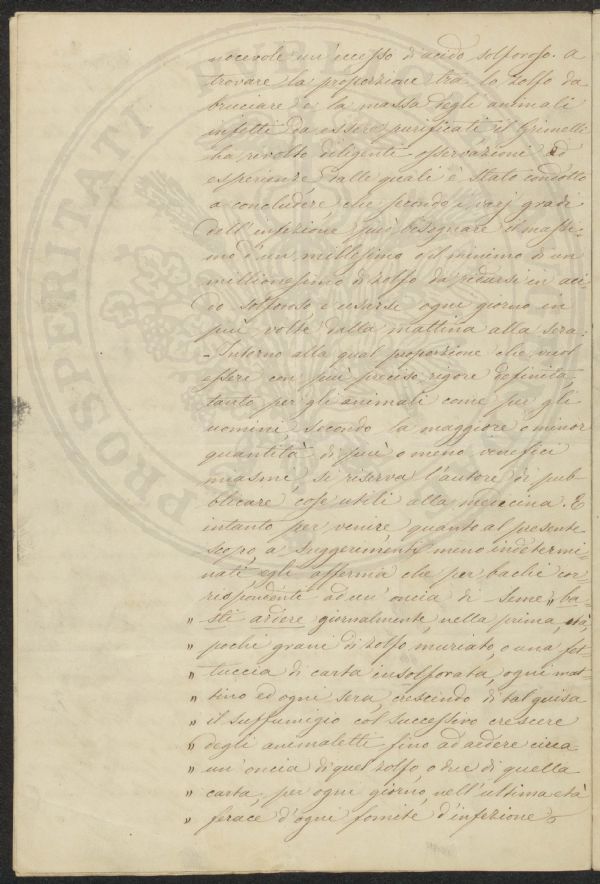 nocevole un'eccesso di acido solforoso. A
trovare la proporzione tra lo zolfo da
bruciare e la massa degli animali
infetti da essere purificati il Grimelli
ha rivolto diligenti osservazioni ed
esperienze, dalle quali è stato condotto
a concludere, che secondo i varj gradi
dell'infezione, può bisognare il massi-
mo d'un millesimo o il minimo di un
millionesimo di zolfo da ridursi in aci-
do solforoso, e usarsi ogni giorno in
più volte dalla mattina alla sera.
- Intorno alla qual proporzione che vuol
essere con più preciso rigore definita,
tanto per gli animali come per gli
uomini, secondo la maggiore o minor
quantità di più o meno venefici
miasmi, si riserva l'autore di pub-
blicare cose utili alla medicina. E
intanto per venire, quanto al presente
scopo, a suggerimenti meno indetermi-
nati egli afferma che per bachi cor-
rispondenti ad un'oncia di seme „ ba-
„ sti ardere giornalmente, nella prima età,
„ pochi grani di zolfo muriato, o una fet-
„ tuccia di carta insolforata, ogni mat-
„ tino ed ogni sera, crescendo di tal guisa
„ il suffumigio col successivo crescere
„ degli animaletti fino ad ardere circa
„ un'oncia di quel zolfo, o due di quella
„ carta, per ogni giorno, nell'ultima età
„ ferace d'ogni fomite d'infezione
PROSPERITATI